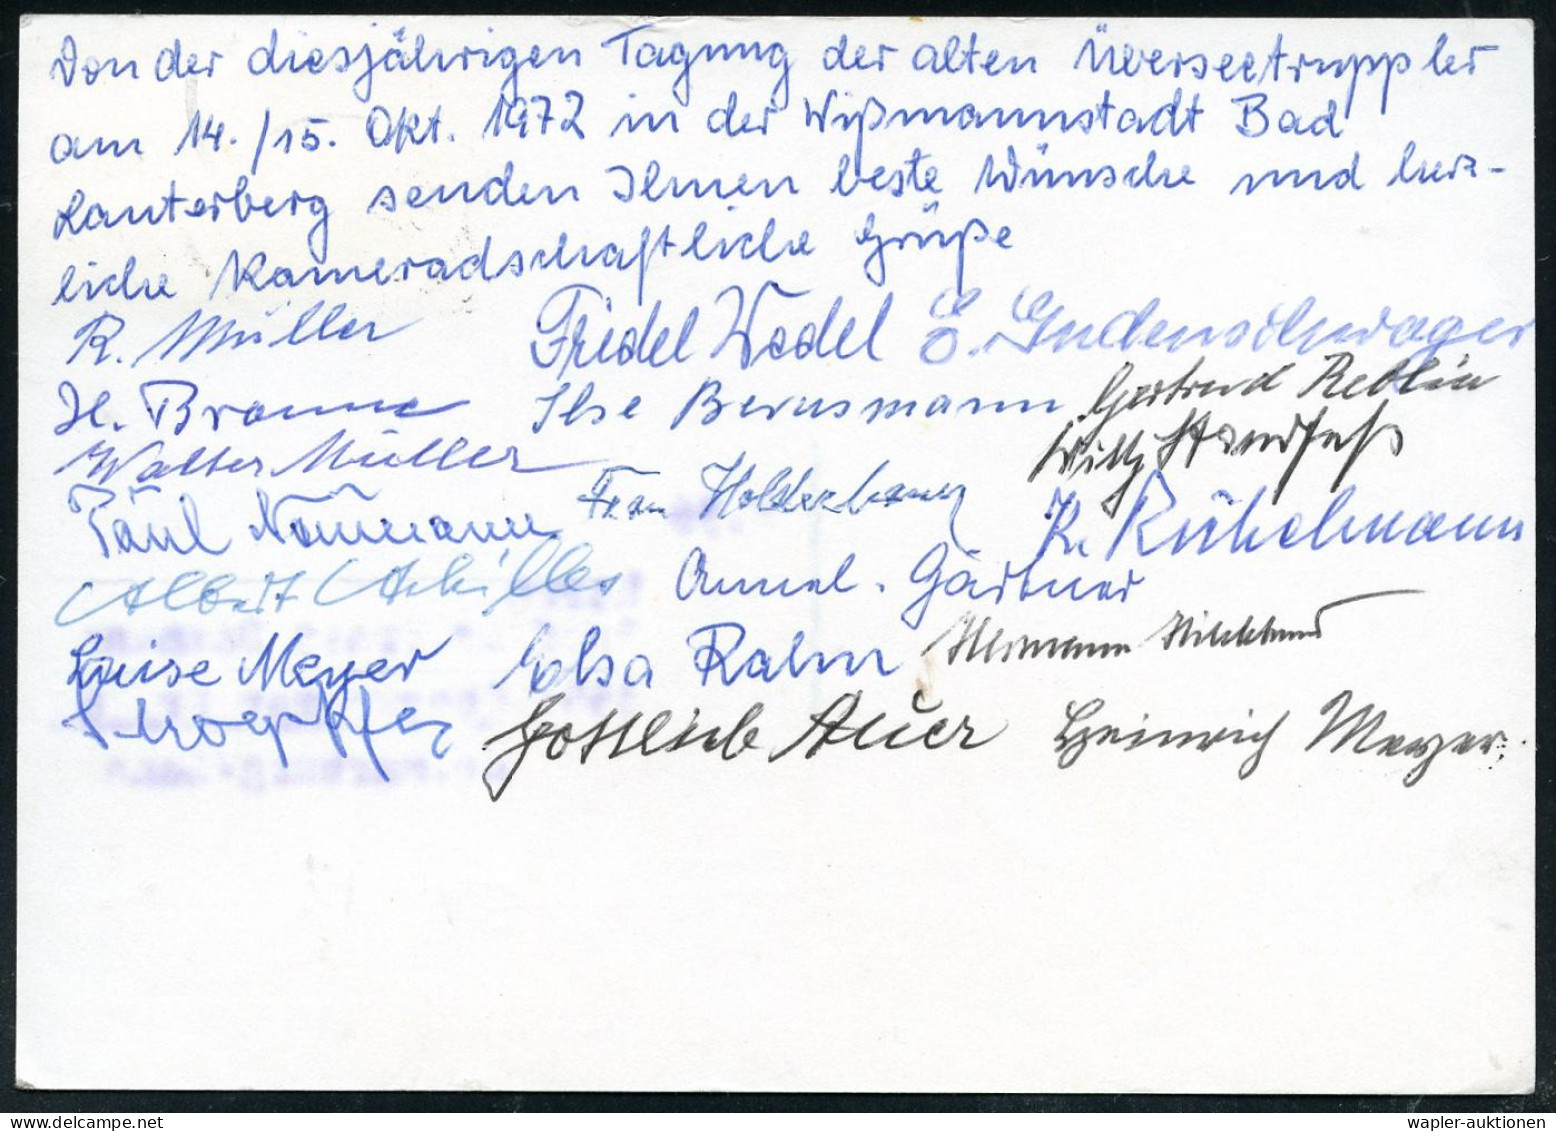 Von der diesjährigen Tagung der alten Überseetruppler
am 14./15. Okt. 1972 in der Wißmannstadt Bad
Lauterberg senden Ihnen beste Wünsche und herz-
liche Kameradschaftliche Grüße
R. Müller Friedel Wedel E. Gudenschwager
H. Braune Ilse Bernsmann Gertrud Reblin
Walter Müller Willy Handfaß
Paul Naumann Frau K. Rühelmann
Albert Achilles Annel. Gärtner
Luise Meyer Elsa Rahn Hermann
Gottlieb Auer Heinrich Meyer.
wapler-auktionen